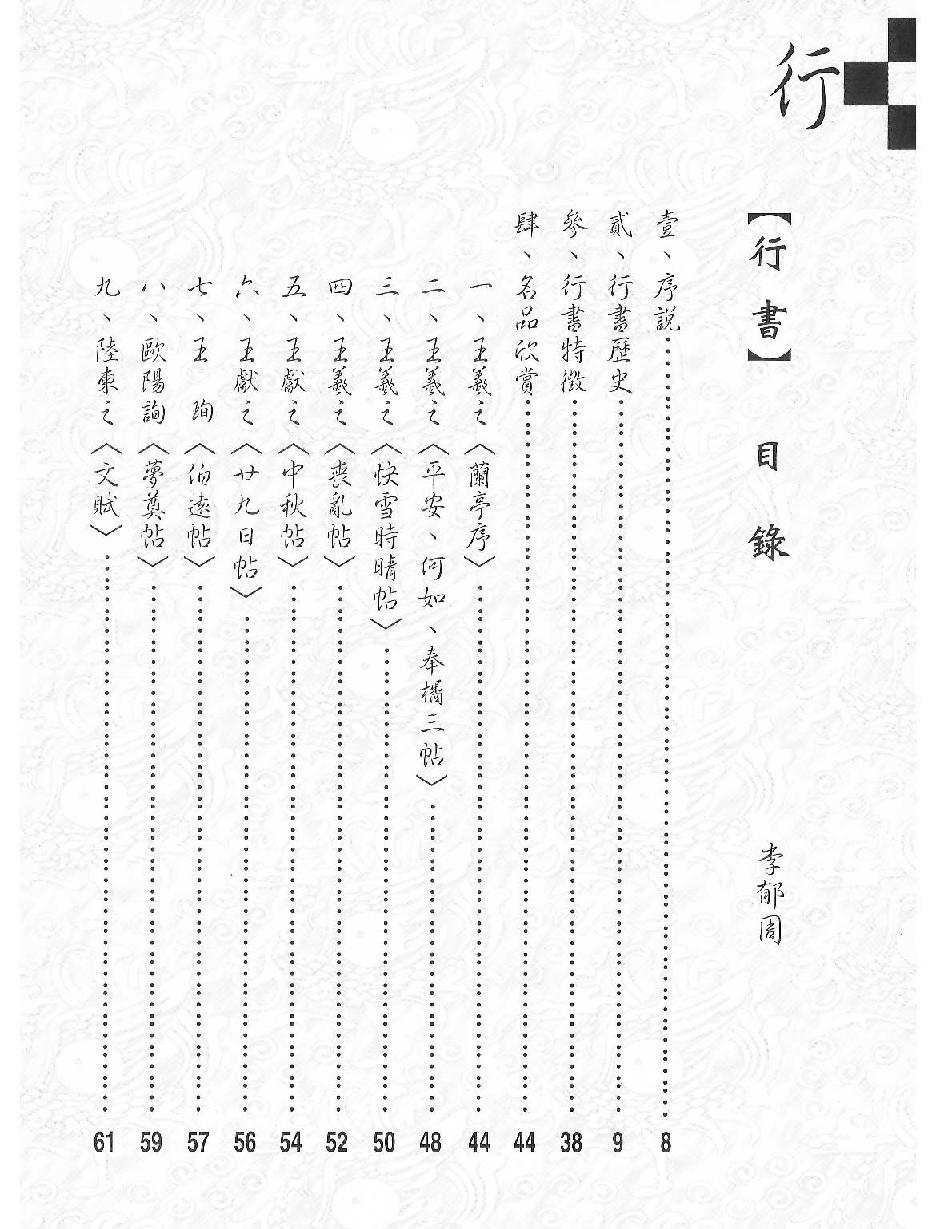 行
【行書】 目錄
李郁周
壹、序說……8
貳、行書歷史……9
參、行書特徵……38
肆、名品欣賞……44
一、王羲之〈蘭亭序〉……44
二、王羲之〈平安、何如、奉橘三帖〉……48
三、王羲之〈快雪時晴帖〉……50
四、王羲之〈喪亂帖〉……52
五、王獻之〈中秋帖〉……54
六、王獻之〈廿九日帖〉……56
七、王 珣〈伯遠帖〉……57
八、歐陽詢〈夢奠帖〉……59
九、陸柬之〈文賦〉……61